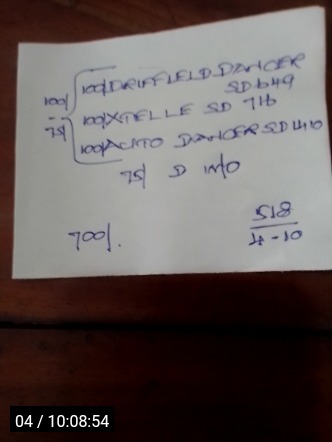 100/ 100/ DRIFFLELD DANCER
SD 649
75/ 100/ XTELLE SD 716
100/ ACITO DANCER SD 410
75/ D M/O
700/.
518
4-10
04 / 10:08:54